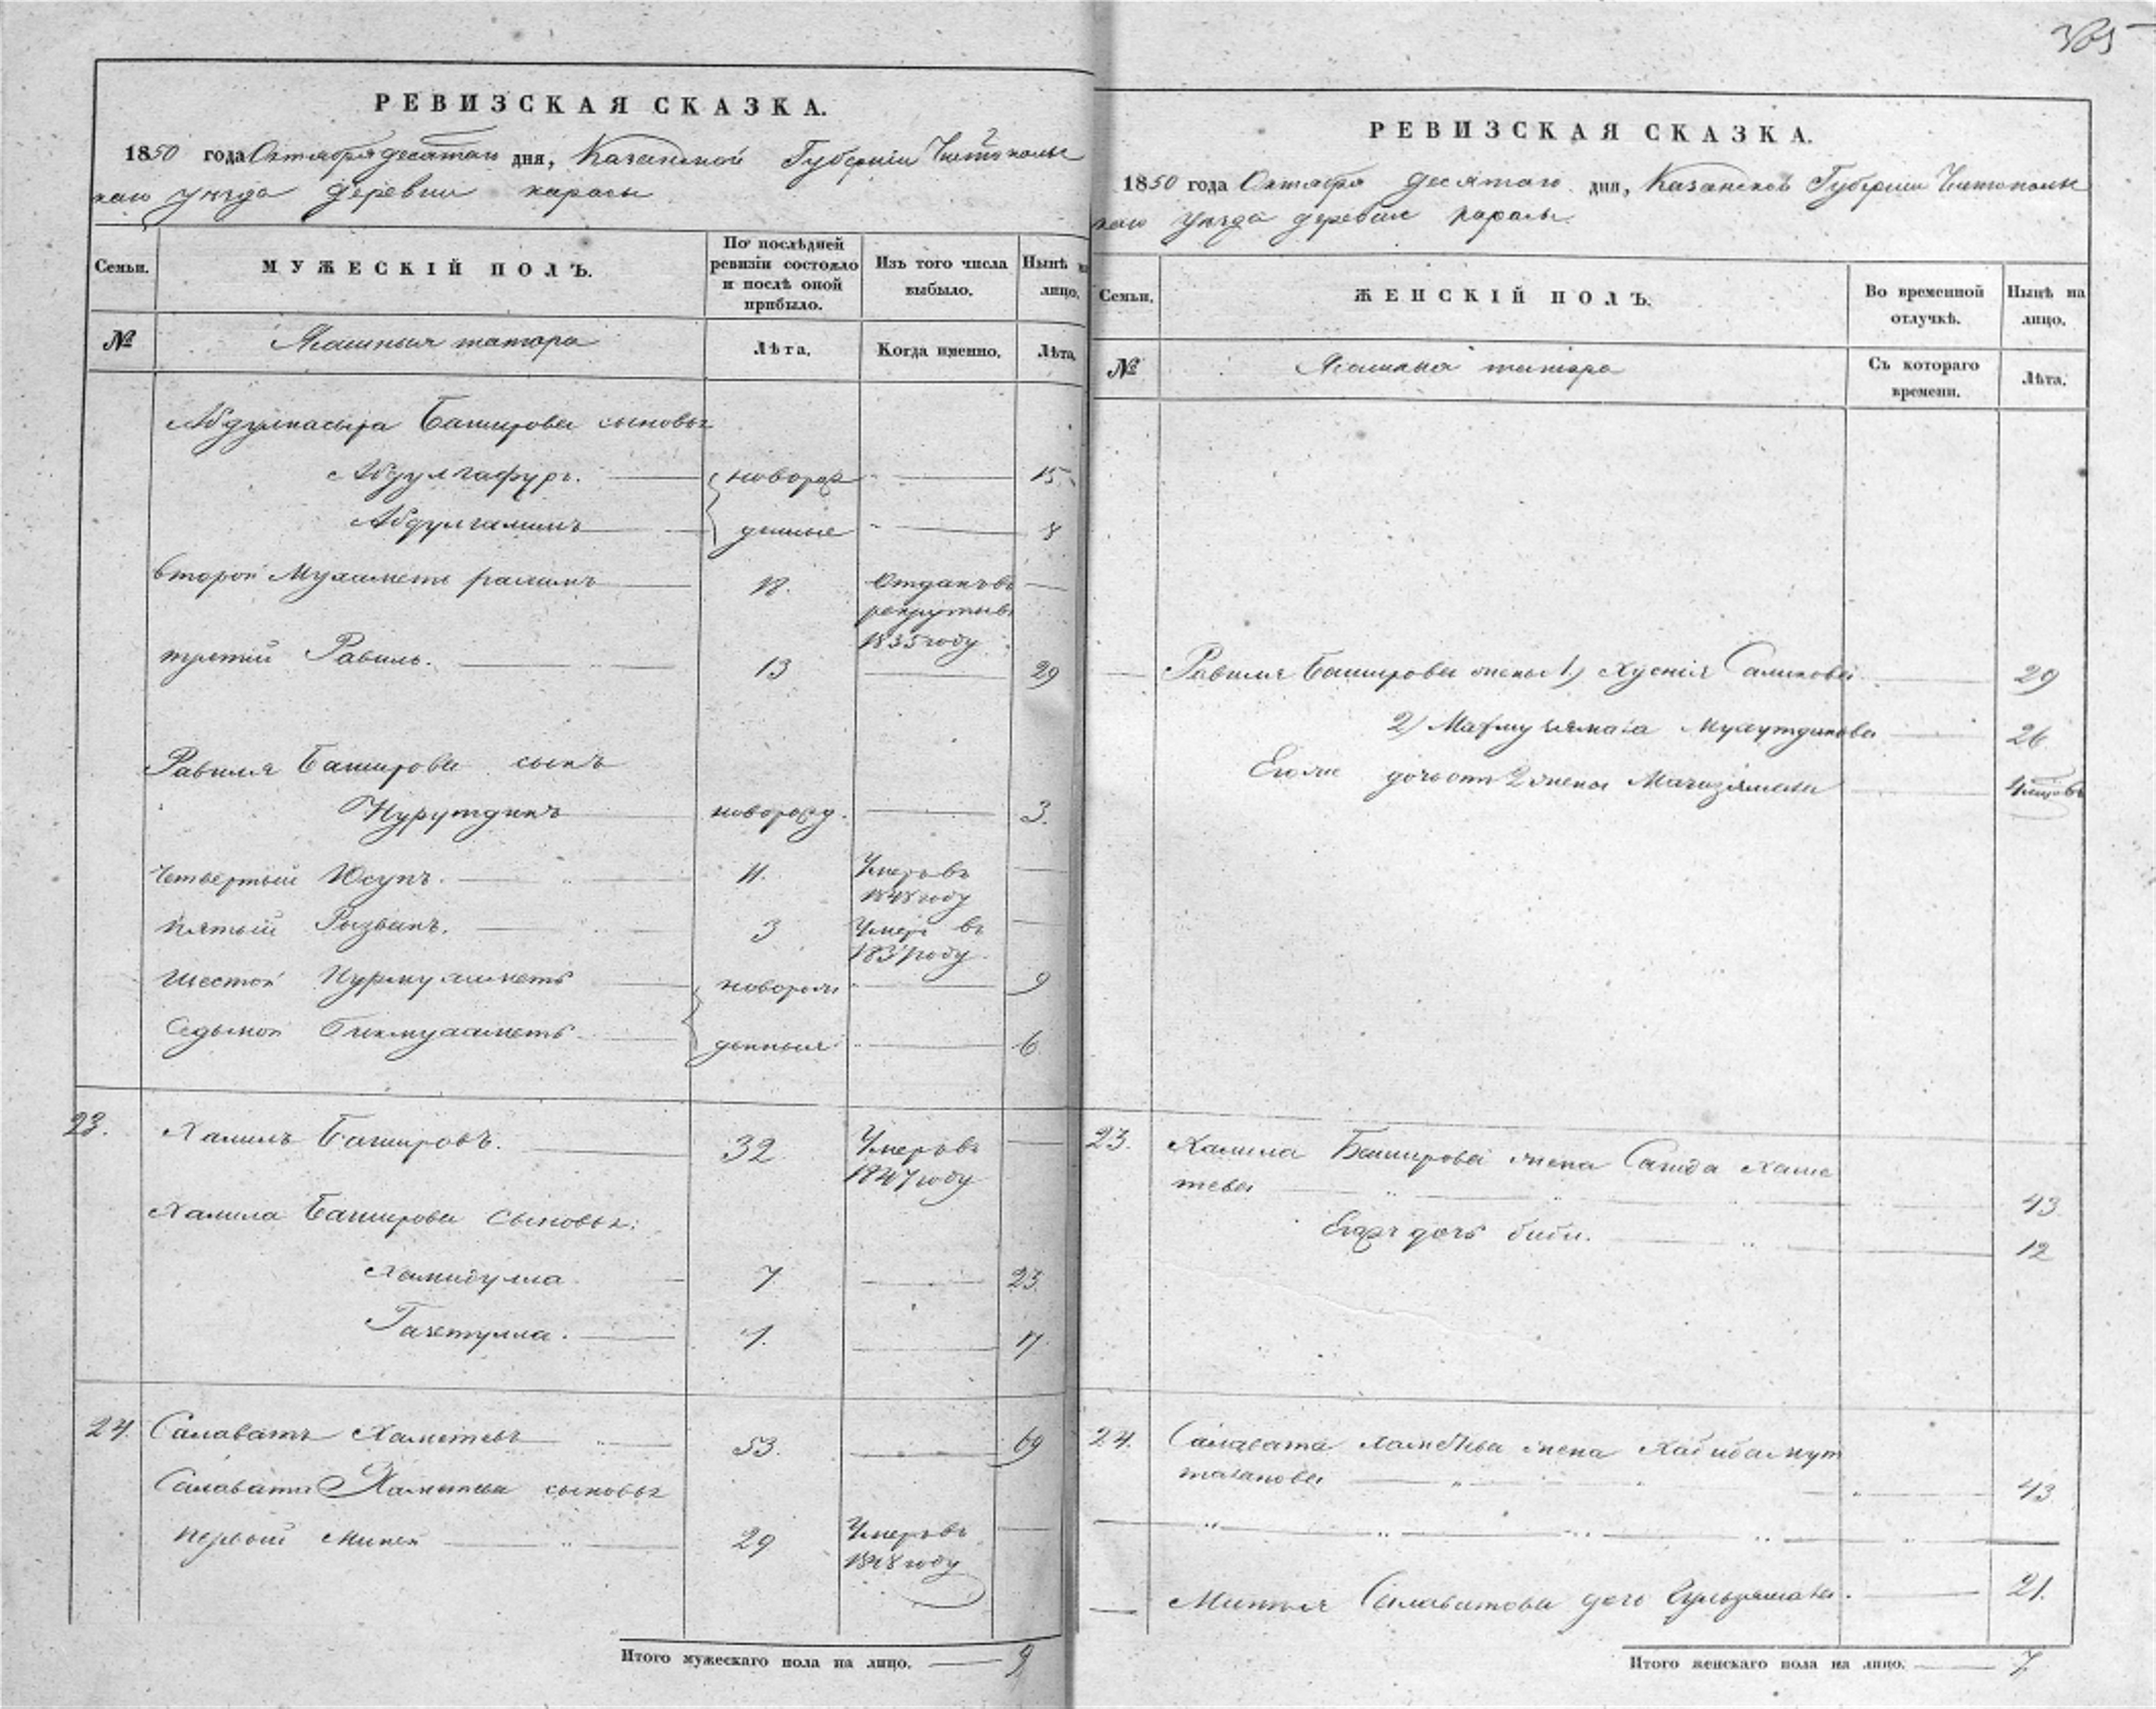 365
РЕВИЗСКАЯ СКАЗКА.
1850 года Октября десятаго дня, Казанской Губернии Чистополь
скаго уезда деревни
Семьи.
МУЖЕСКІЙ ПОЛЪ.
По послѣдней ревизіи состояло и послѣ оной прибыло.
Изъ того числа выбыло.
Нынѣ на лицо.
№
Ясашныя татара
Лѣта.
Когда именно.
Лѣта.
Баширова сыновья
Абдулгафуръ. новорож 15
денные 8
второй Мухаметь рахимъ 18. Отданъ въ
рекруты въ
1835 году
третий Равиль. 13 29
Равиля Баширова сынъ
Нурутдинъ новорожд. 3.
Четвертый Юсупъ. 11. Умеръ въ
1848 году
пятый 3 Умеръ въ
году
шестой Нурмухаметъ новорож 9
Седьмой Бикмухаметъ денныя 6
23. Халилъ Башировъ. 32 Умеръ въ
1847 году
Халила Баширова Сыновья:
Хамидулла 7 23
1. 17
24. Салаватъ Хаметевъ 53. 69
Салавата Хаметева сыновья
первой Миней 29 Умеръ въ
1848 году
Итого мужескаго пола на лицо. 9
РЕВИЗСКАЯ СКАЗКА.
1850 года Октября десятаго дня, Казанской Губернии Чистополь
скаго уезда деревни
Семьи.
ЖЕНСКІЙ ПОЛЪ.
Во временной отлучкѣ.
Нынѣ на лицо.
№
Ясашныя татара
Съ котораго времени.
Лѣта.
Равиля Баширова жены 1) Хуснія 29
2) 26
Его же дочь от 2 жены
23. Халила Башировa жена Хаме
тева 43
Ихъ дочь биби. 12
24. Салавата Хаметева жена
43
Минея Салаватова дочь 21.
Итого женскаго пола на лицо. 7